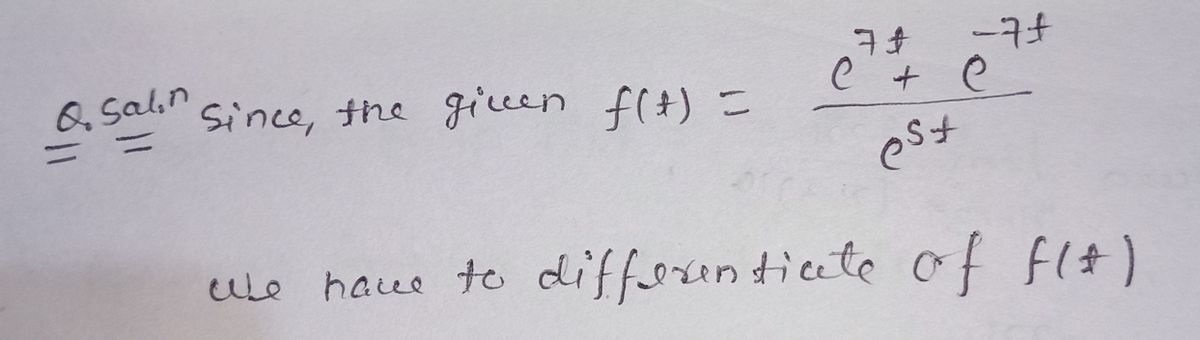 Q. Sol.n Since, the given f(t) = (e^{7t} + e^{-7t}) / e^{5t}
We have to differentiate of f(t)